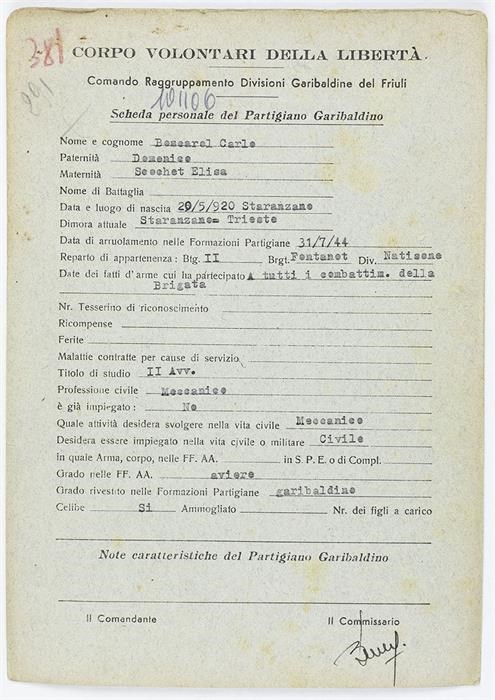 381
291
CORPO VOLONTARI DELLA LIBERTÀ
Comando Raggruppamento Divisioni Garibaldine del Friuli
101106
Scheda personale del Partigiano Garibaldino
Nome e cognome Boscarol Carlo
Paternità Domenico
Maternità Secchet Elisa
Nome di Battaglia
Data e luogo di nascita 29/5/920 Staranzano
Dimora attuale Staranzano- Trieste
Data di arruolamento nelle Formazioni Partigiane 31/7/44
Reparto di appartenenza : Btg. II Brgt. Fontanot Div. Natisone
Date dei fatti d'arme cui ha partecipato A tutti i combattim. della
Brigata
Nr. Tesserino di riconoscimento
Ricompense
Ferite
Malattie contratte per cause di servizio
Titolo di studio II Avv.
Professione civile Meccanico
è già impiegato : No
Quale attività desidera svolgere nella vita civile Meccanico
Desidera essere impiegato nella vita civile o militare Civile
in quale Arma, corpo, nelle FF. AA. in S. P. E. o di Compl.
Grado nelle FF. AA. aviere
Grado rivestito nelle Formazioni Partigiane garibaldino
Celibe Si Ammogliato Nr. dei figli a carico
Note caratteristiche del Partigiano Garibaldino
Il Comandante Il Commissario